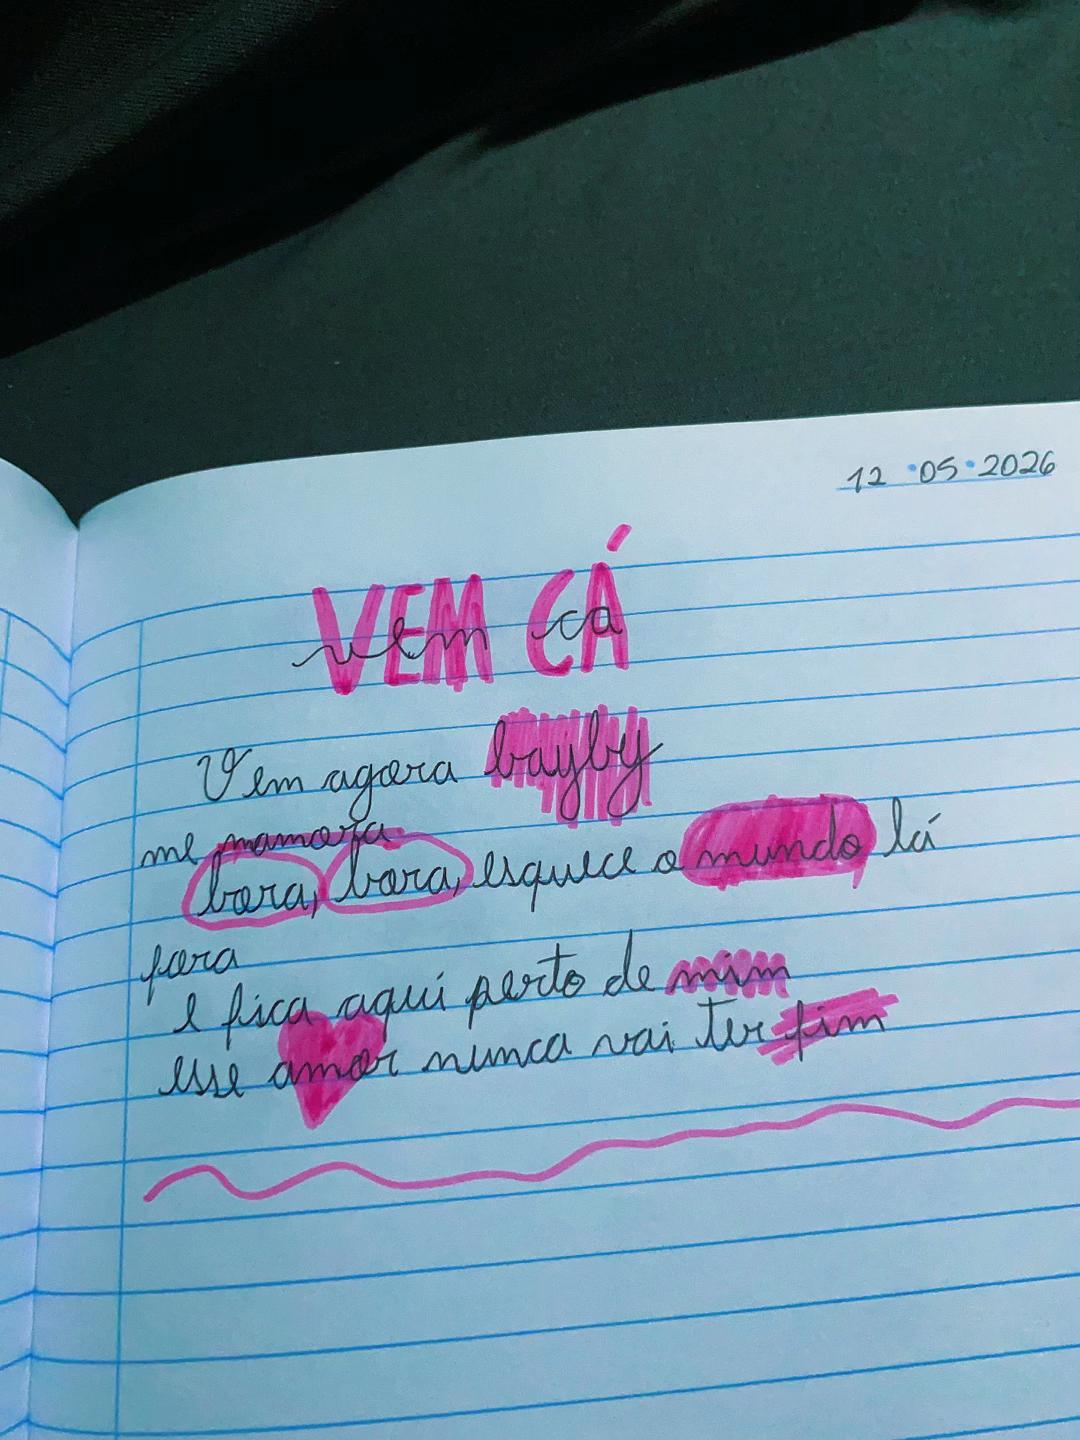 12 • 05 • 2026
VEM CÁ
vem cá
Vem agora bayby
me namora
bora, bora, esquece o mundo lá
fora
e fica aqui perto de mim
esse amor nunca vai ter fim